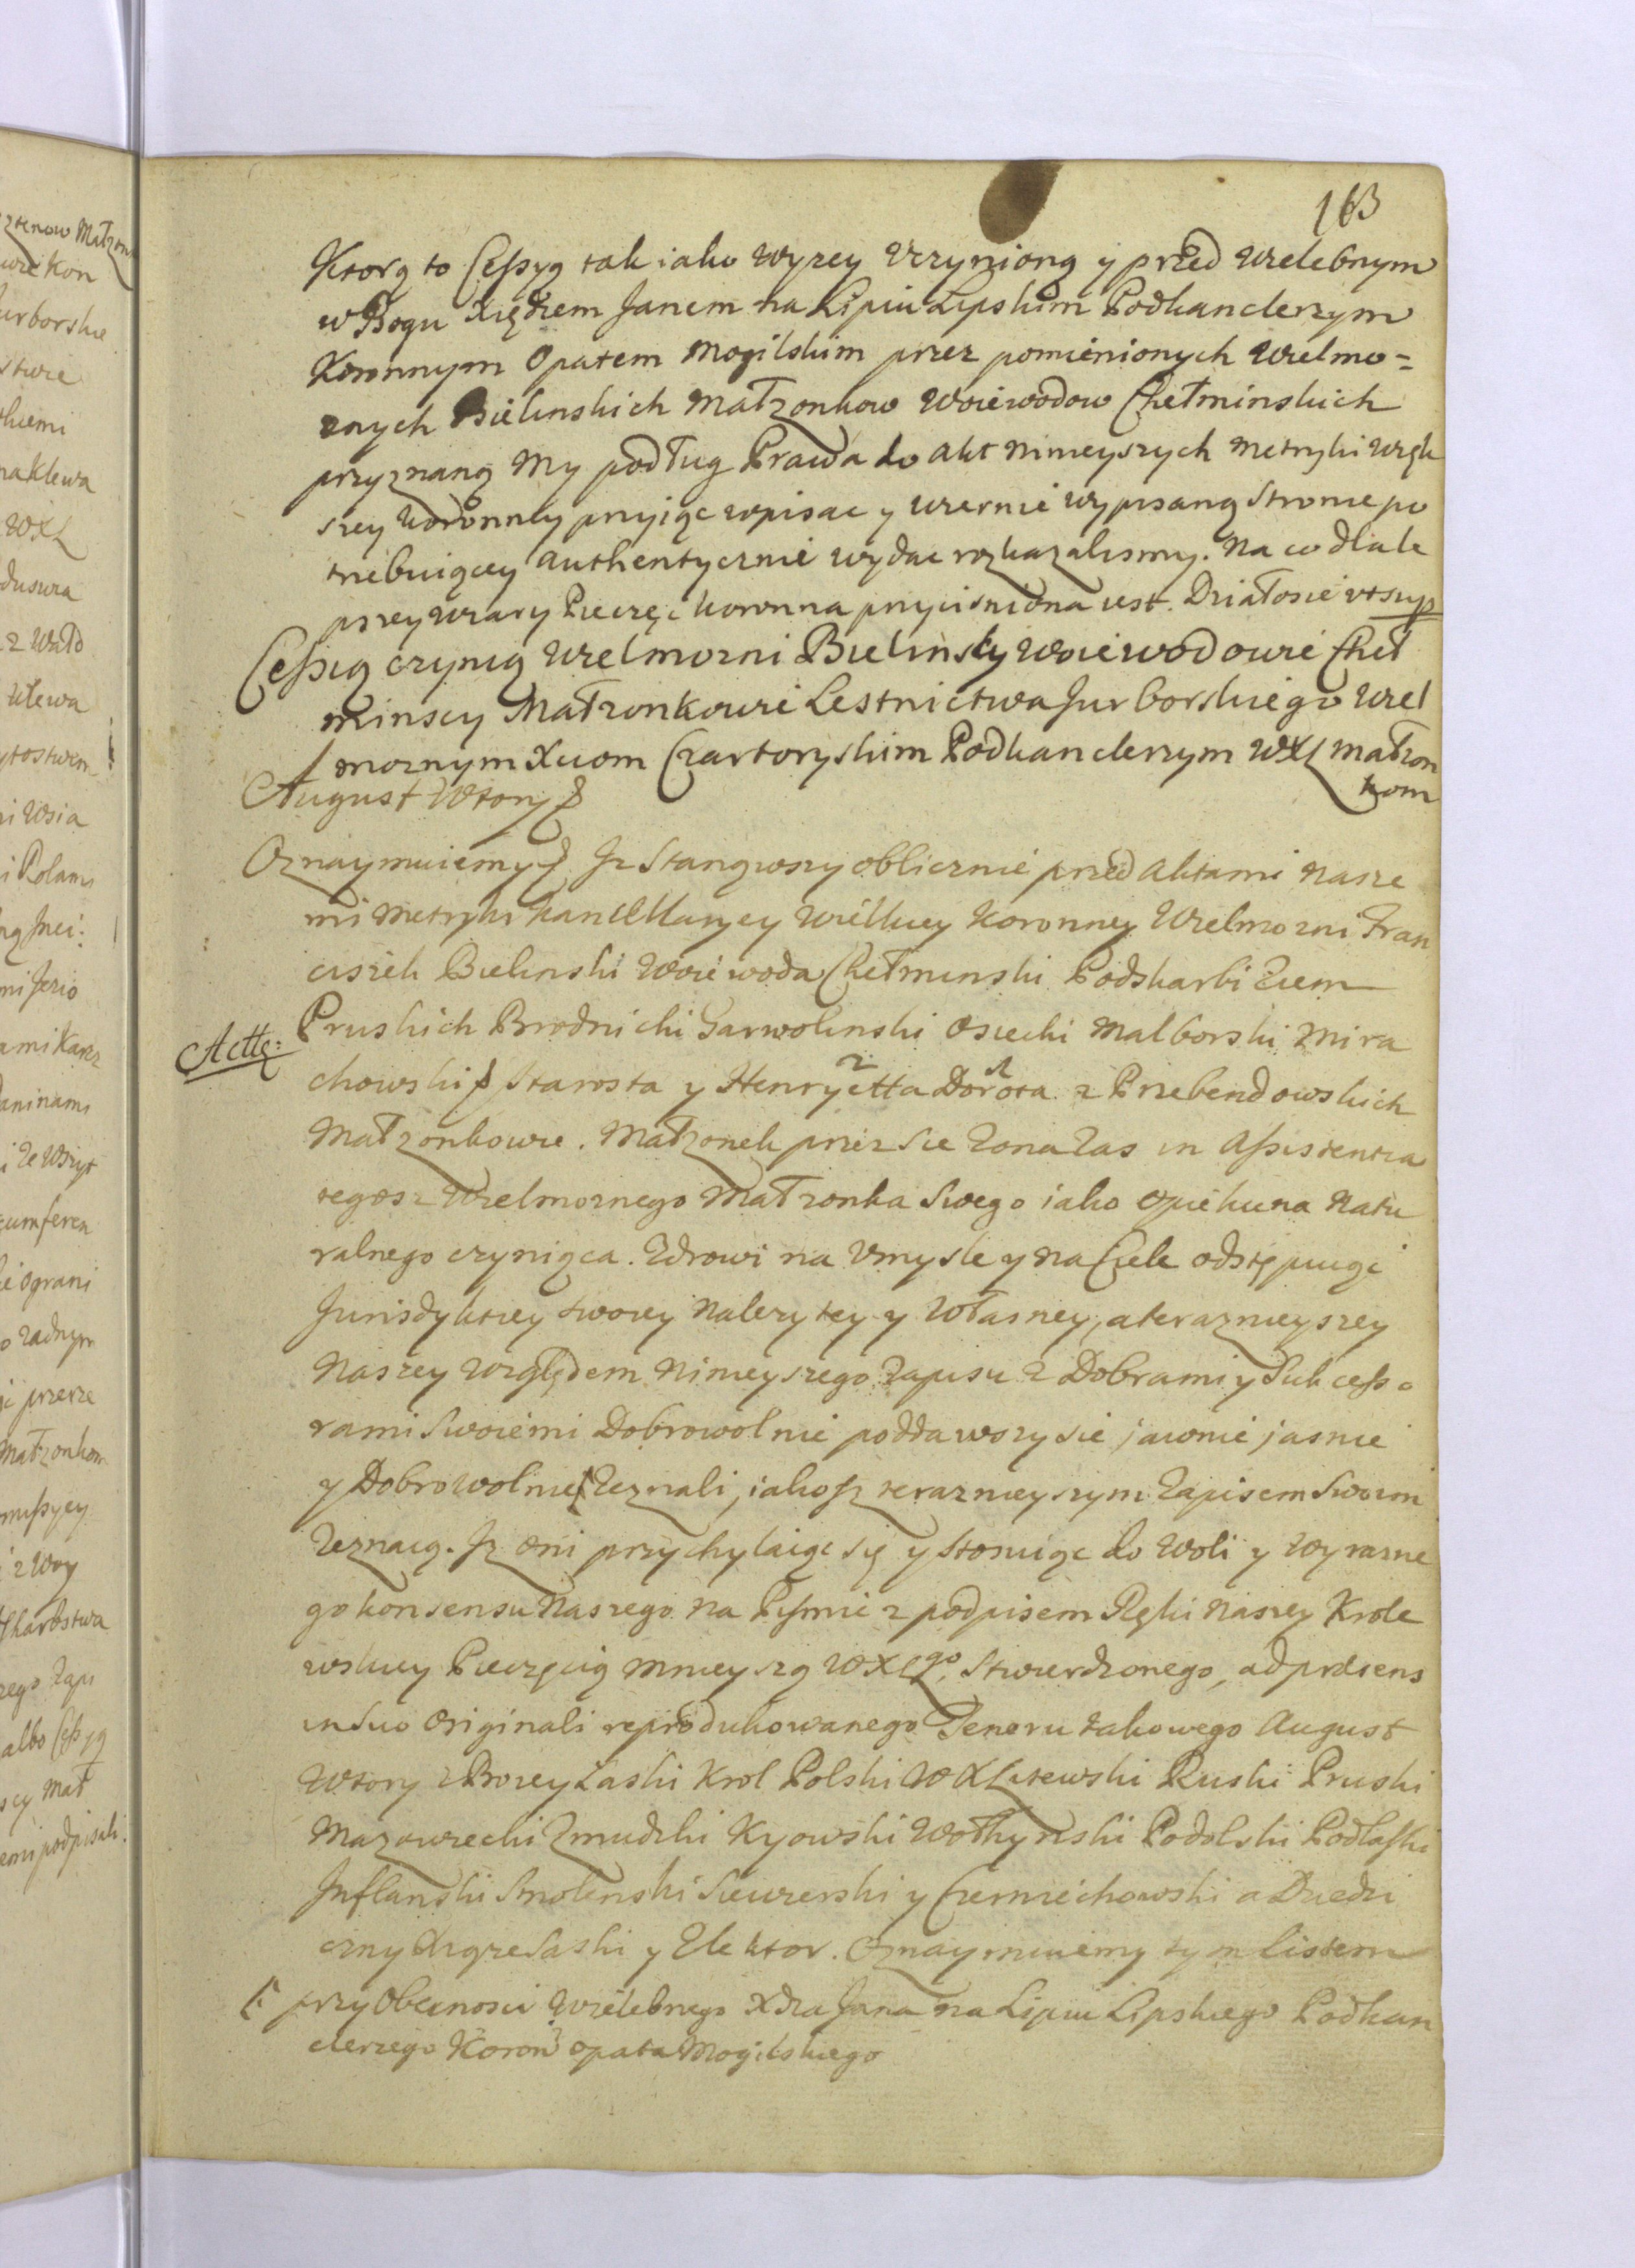 163
Ktorą to Cessyą tak iako wyzey uczynioną y przed Wielebnym
w Bogu Xiędzem Janem na Lipiu Lipskim Podkanclerzym
Koronnym Opatem Mogilskim przez pomienionych Wielmo=
znych Bielinskich Małzonkow Woiewodow Chełminskich
przyznaną My podług Prawa do Akt Ninieyszych Metryki Więk
szey Koronney przyiąc wpisac y wiernie wypisaną Stronie po
trzebuiącey Authentycznie wydac rozkazalismy. Na co dla le
pszey wiary Pieczęc koronna przycisniona iest. Działo sie vt sup
Cessią czynią Wielmozni Bielinscy Woiewodowie Cheł
minscy Małzonkowie Lestnictwa Jurborskiego Wiel
moznym Xciom Czartoryskim Podkanclerzym WXL Małzon
kom
August Wtory
Oznaymuiemy Iz Stanąwszy obliczenie przed Aktami Nasze
mi Metryki Kancellaryey Wielkiey Koronney Wielmozni Fran
ciszek Bielinski Woiewoda Chełminski Podskarbi Ziem
Pruskich Brodnicki Garwolinski Osiecki Malborski Mira
Actic:
chowski Starosta y Henryetta Dorota z Przebendowskich
Małzonkowie. Małzonek przez sie Zona zas in Assistentia
tegosz Wielmoznego Małzonka Swego iako Opiekuna Natu
ralnego czyniąca. Zdrowi na Vmysle y na Ciele odstępuiąc
Jurisdykcyey swoiey Nalezytey y Własney, a teraznieyszey
Naszey względem Ninieyszego zapisu z Dobrami y Sukcesso
rami Swoiemi Dobrowolnie poddawszy sie jawnie jasnie
y Dobrowolnie Zeznali, iakosz teraznieyszym Zapisem Swoim
Zeznaią. Iz oni przychylaiąc się y stosuiąc do Woli y wyrazne
go konsensu Naszego na Pismie z podpisem Ręki Naszey Krole
wskiey Pieczęcią Mnieyszą WXLgo Stwierdzonego, ad præsens
in Suo Originali reprodukowanego Tenoru takowego August
Wtory z Bozey Łaski Krol Polski WXLitewski Ruski Pruski
Mazowiecki Zmudzki Kyowski Wołhynski Podolski Podlaski
Inflanski Smolenski Siewierski y Czerniechowski a Dziedzi
czny Xiąze Saski y Elektor. Oznaymuiemy tym listem
przy Obecnosci Wielebnego Xdza Jana na Lipiu Lipskiego Podkan
clerzego Koron Opata Mogilskiego